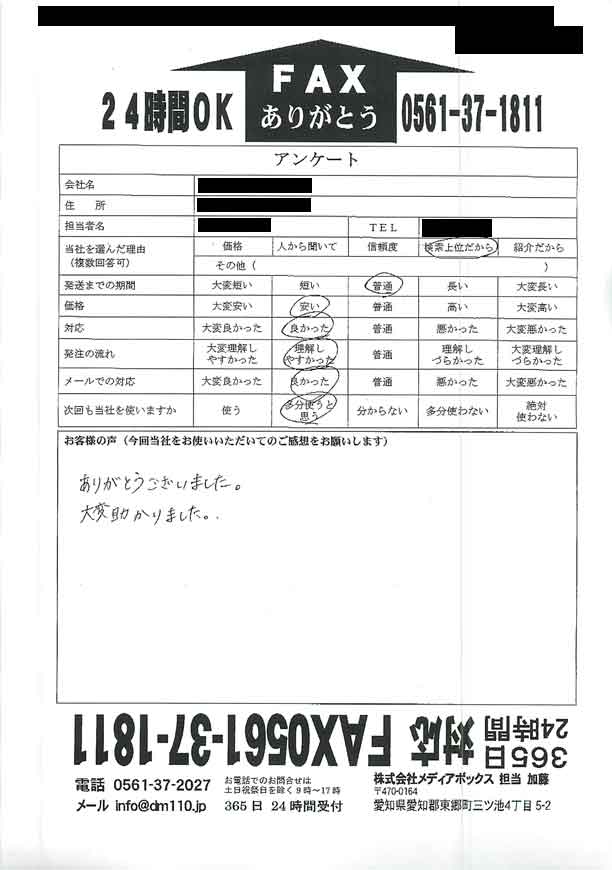 FAX
ありがとう
24時間OK
0561-37-1811
アンケート
会社名
住 所
担当者名 TEL
当社を選んだ理由 価格 人から聞いて 信頼度 検索上位だから 紹介だから
(複数回答可) その他( )
発送までの期間 大変短い 短い 普通 長い 大変長い
価格 大変安い 安い 普通 高い 大変高い
対応 大変良かった 良かった 普通 悪かった 大変悪かった
発注の流れ 大変理解しやすかった 理解しやすかった 普通 理解しづらかった 大変理解しづらかった
メールでの対応 大変良かった 良かった 普通 悪かった 大変悪かった
次回も当社を使いますか 使う 多分使うと思う 分からない 多分使わない 絶対使わない
お客様の声(今回当社をお使いいただいてのご感想をお願いします)
ありがとうございました。
大変助かりました。
365日
24時間
対応 FAX0561-37-1811
電話 0561-37-2027
メール info@dm110.jp
お電話でのお問合せは
土日祝祭日を除く9時~17時
365日 24時間受付
株式会社メディアボックス 担当 加藤
〒470-0164
愛知県愛知郡東郷町三ツ池4丁目5-2